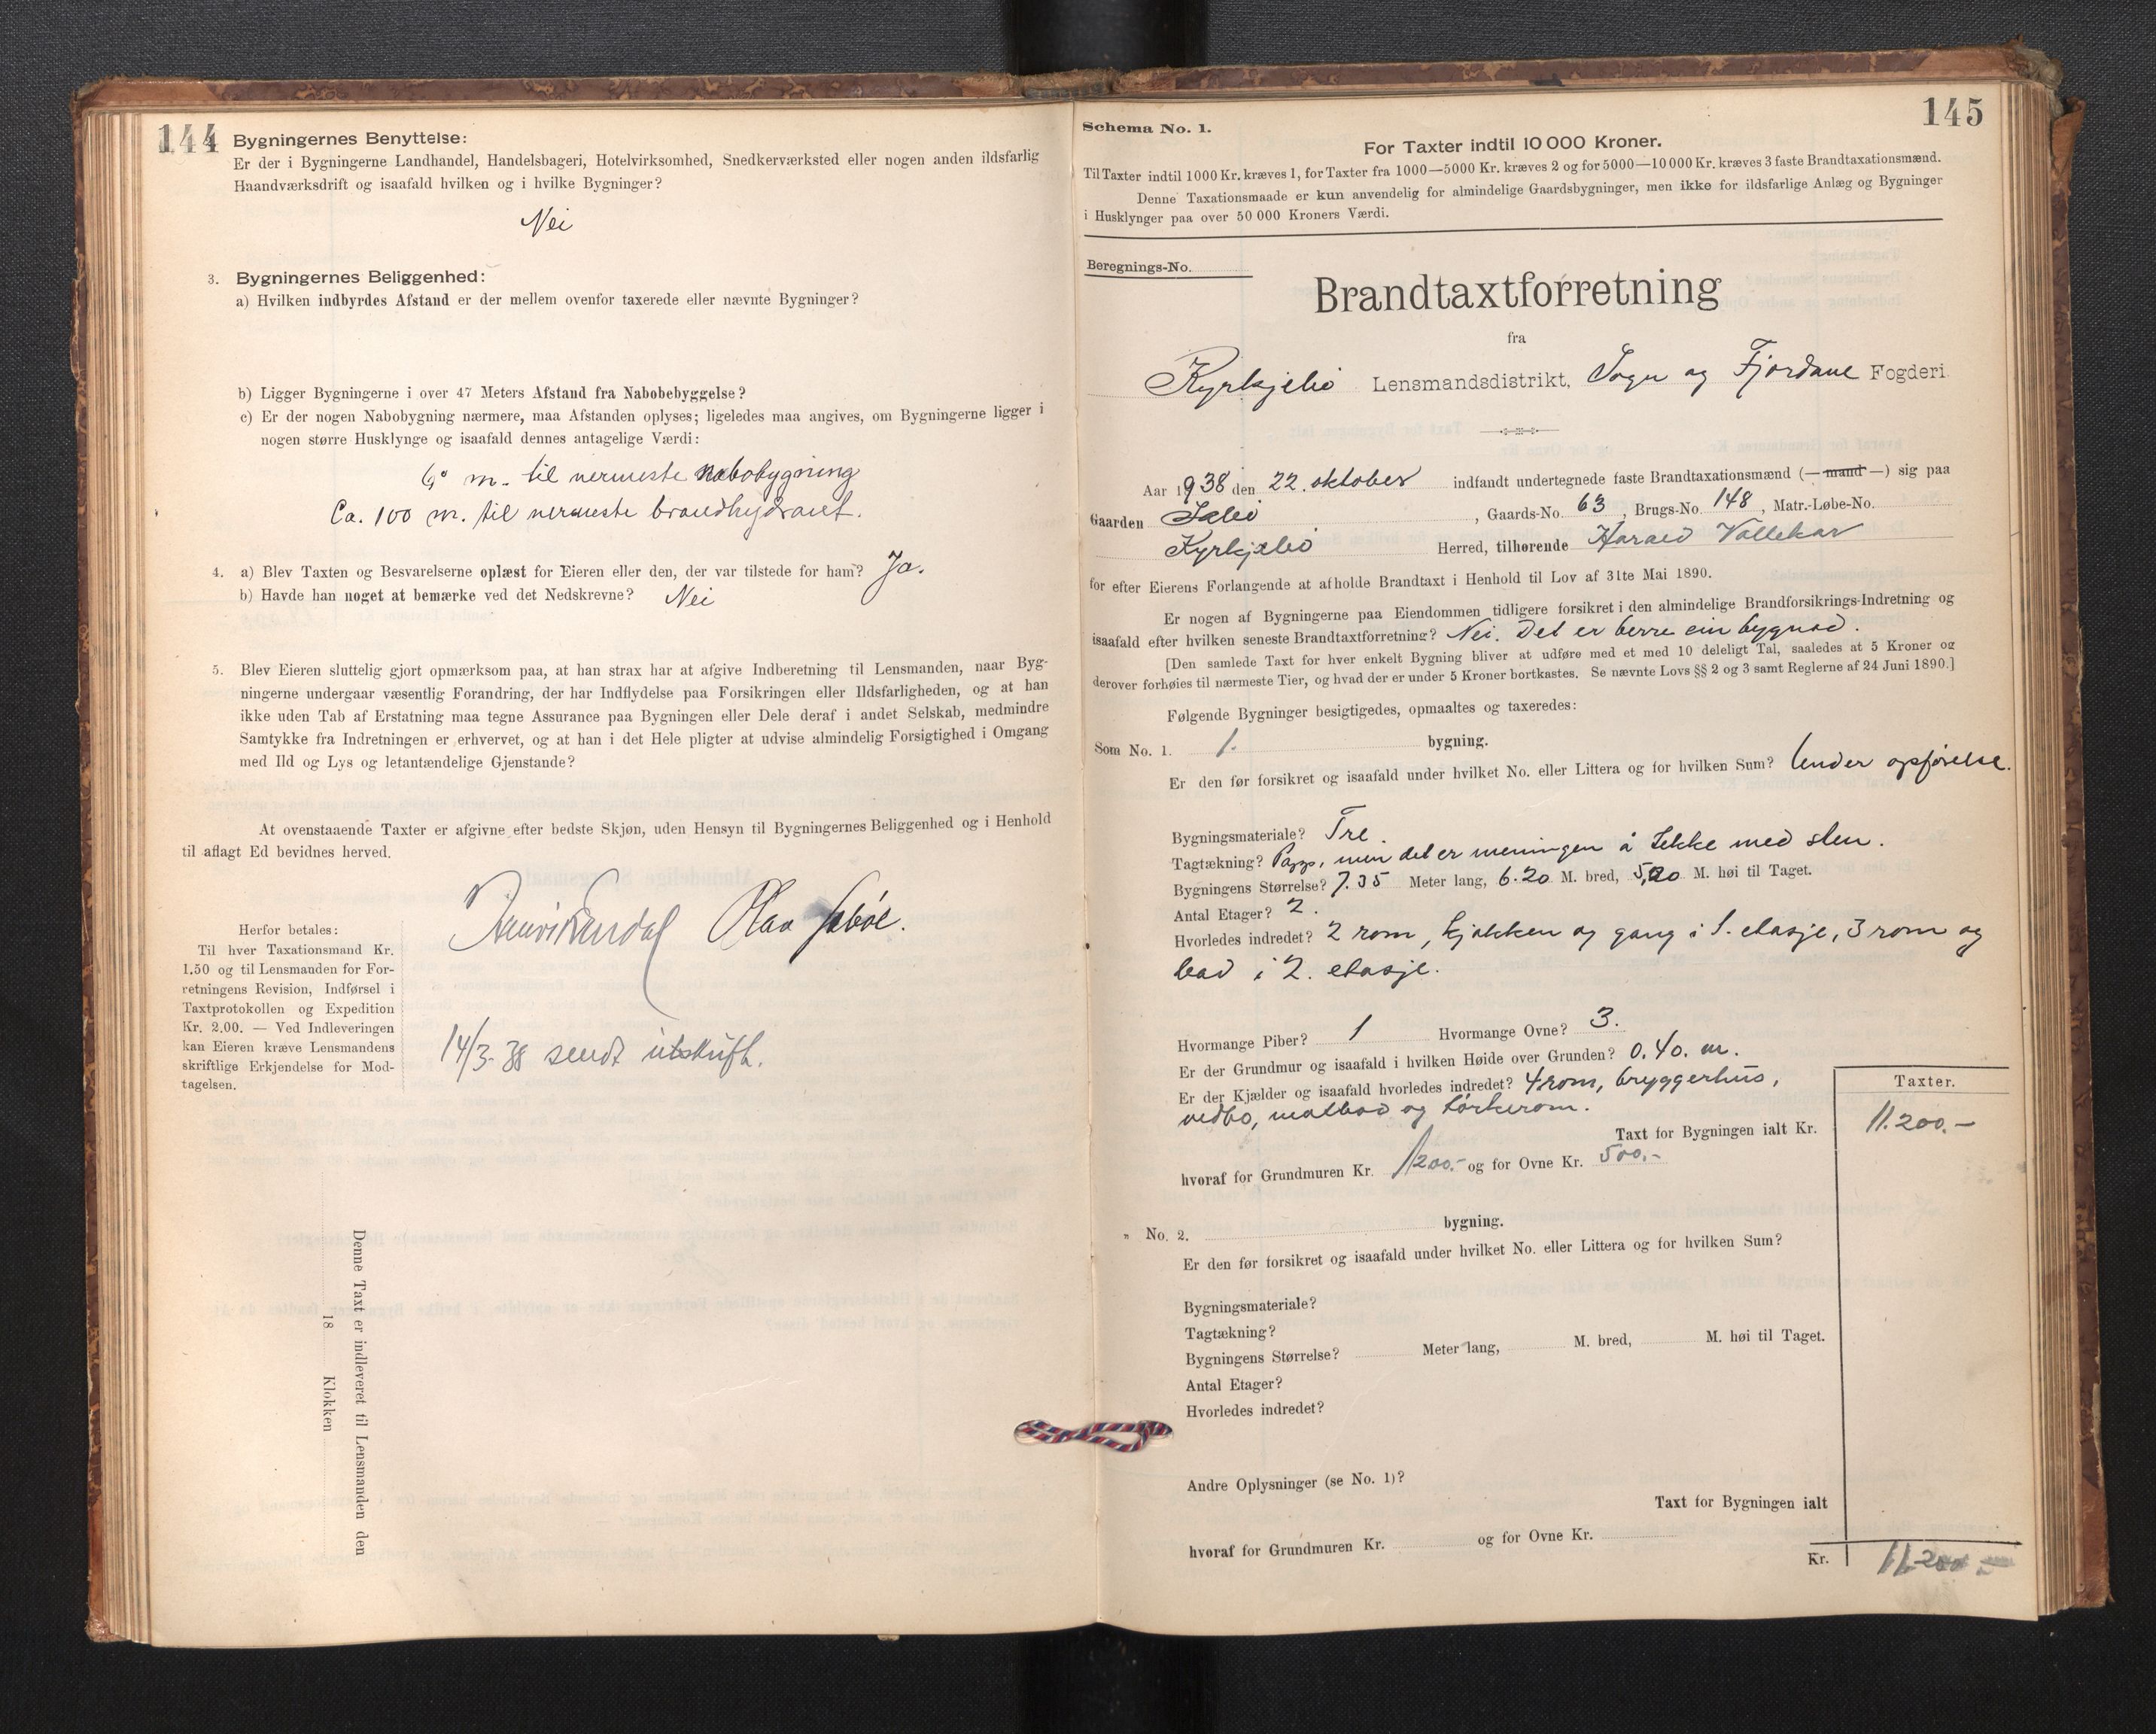 144
Bygningernes Benyttelse:
Er der i Bygningerne Landhandel, Handelsbageri, Hotelvirksomhed, Snedkerværksted eller nogen anden ildsfarlig
Haandværksdrift og isaafald hvilken og i hvilke Bygninger?
Nei
3. Bygningernes Beliggenhed:
a) Hvilken indbyrdes Afstand er der mellem ovenfor taxerede eller nævnte Bygninger?
b) Ligger Bygningerne i over 47 Meters Afstand fra Nabobebyggelse?
c) Er der nogen Nabobygning nærmere, maa Afstanden oplyses; ligeledes maa angives, om Bygningerne ligger i
nogen større Husklynge og isaafald dennes antagelige Værdi:
m. til nermeste nabobygning
Ca. 100 m. til nermeste brandhydrant.
4. a) Blev Taxten og Besvarelserne oplæst for Eieren eller den, der var tilstede for ham? Ja.
b) Havde han noget at bemærke ved det Nedskrevne? Nei
5. Blev Eieren sluttelig gjort opmærksom paa, at han strax har at afgive Indberetning til Lensmanden, naar Byg-
ningerne undergaar væsentlig Forandring, der har Indflydelse paa Forsikringen eller Ildsfarligheden, og at han
ikke uden Tab af Erstatning maa tegne Assurance paa Bygningen eller Dele deraf i andet Selskab, medmindre
Samtykke fra Indretningen er erhvervet, og at han i det Hele pligter at udvise almindelig Forsigtighed i Omgang
med Ild og Lys og letantændelige Gjenstande?
At ovenstaaende Taxter er afgivne efter bedste Skjøn, uden Hensyn til Bygningernes Beliggenhed og i Henhold
til aflagt Ed bevidnes herved.
Olav Sabøe.
Herfor betales:
Til hver Taxationsmand Kr.
1.50 og til Lensmanden for For-
retningens Revision, Indførsel i
Taxtprotokollen og Expedition
Kr. 2.00. — Ved Indleveringen
kan Eieren kræve Lensmandens
skriftlige Erkjendelse for Mod-
tagelsen.
14/3-38 sendt utskrift.
Denne Taxt er indleveret til Lensmanden den
18 Klokken
145
Schema No. 1.
For Taxter indtil 10 000 Kroner.
Til Taxter indtil 1000 Kr. kræves 1, for Taxter fra 1000—5000 Kr. kræves 2 og for 5000—10 000 Kr. kræves 3 faste Brandtaxationsmænd.
Denne Taxationsmaade er kun anvendelig for almindelige Gaardsbygninger, men ikke for ildsfarlige Anlæg og Bygninger
i Husklynger paa over 50 000 Kroners Værdi.
Beregnings-No.
Brandtaxtforretning
fra
Kyrkjebø Lensmandsdistrikt, Sogn og Fjordane Fogderi
Aar 1938 den 22. oktober indfandt undertegnede faste Brandtaxationsmænd (— mand —) sig paa
Gaarden , Gaards-No. 63 , Brugs-No. 148 , Matr.-Løbe-No.
Kyrkjebø Herred, tilhørende Harald Vallekar
for efter Eierens Forlangende at afholde Brandtaxt i Henhold til Lov af 31te Mai 1890.
Er nogen af Bygningerne paa Eiendommen tidligere forsikret i den almindelige Brandforsikrings-Indretning og
isaafald efter hvilken seneste Brandtaxtforretning? Nei. Det er berre ein bygnad.
[Den samlede Taxt for hver enkelt Bygning bliver at udføre med et med 10 deleligt Tal, saaledes at 5 Kroner og
derover forhøies til nærmeste Tier, og hvad der er under 5 Kroner bortkastes. Se nævnte Lovs §§ 2 og 3 samt Reglerne af 24 Juni 1890.]
Følgende Bygninger besigtigedes, opmaaltes og taxeredes:
Som No. 1. 1. bygning.
Er den før forsikret og isaafald under hvilket No. eller Littera og for hvilken Sum? Under opførelse.
Bygningsmateriale? Tre.
Tagtækning? Papp, men det er meningen å tekke med sten.
Bygningens Størrelse? 7.35 Meter lang, 6.20 M. bred, 5,20 M. høi til Taget.
Antal Etager? 2.
Hvorledes indredet? 2 rom, kjøkken og gang i 1. etasje, 3 rom og
bad i 2. etasje.
Hvormange Piber? 1 Hvormange Ovne? 3.
Er der Grundmur og isaafald i hvilken Høide over Grunden? 0.40. m.
Er der Kjælder og isaafald hvorledes indredet? 4 rom, bryggerhus,
vedbo, matbod og tørkerom.
Taxter.
Taxt for Bygningen ialt Kr. 11.200.-
hvoraf for Grundmuren Kr. 1200.- og for Ovne Kr. 500.-
" No. 2. bygning.
Er den før forsikret og isaafald under hvilket No. eller Littera og for hvilken Sum?
Bygningsmateriale?
Tagtækning?
Bygningens Størrelse? Meter lang, M. bred, M. høi til Taget.
Antal Etager?
Hvorledes indredet?
Andre Oplysninger (se No. 1)?
Taxt for Bygningen ialt
hvoraf for Grundmuren Kr. og for Ovne Kr.
Kr. 11.200.-